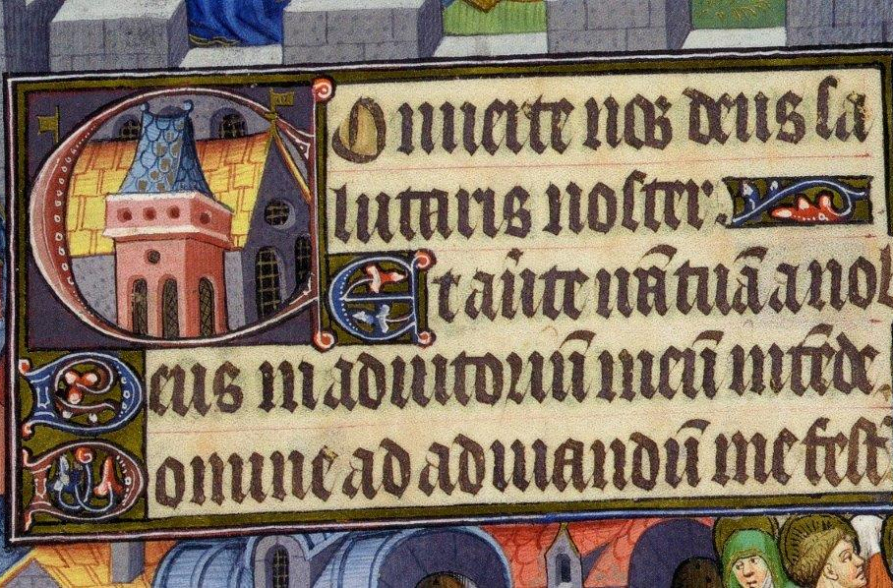 COnuerte nos deus sa
lutaris noster.
Et aũte irã tuã a nob
Deus in adiutoriũ meũ intẽde.
Domine ad adiuuandũ me fest